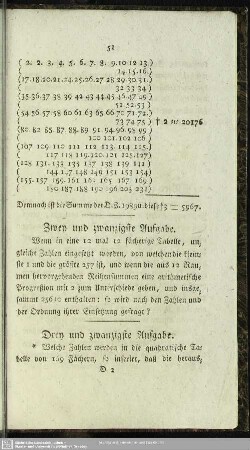 51
( 2. 2. 3. 4. 5. 6. 7. 8. 9. 10. 12 13 )
14. 15. 16. )
( 17. 18. 20. 21. 24. 25. 26. 27 28 29. 30. 31. )
32 33 34 )
( 35. 36. 37 38 39 42 43 44 45 46 47 49 )
51 52. 53 )
( 54 56 57 58 60 61 63 65 66 70 71. 72.
73 74 75 )
( 80 82 85. 87. 88. 89 91. 94. 96. 98. 99 )
100 101. 102 106 )
( 107 109 110 111 112 113 114 115.
117 118 119. 120 121 122. 127 )
( 128 131. 133 135 137 138 139
144 147 148 149 151 153 154 )
( 155. 157. 159. 161 162 165 167 169.
180 187 188 190 196 203 231 )
Zwey und zwanzigste Aufgabe.
Wenn in eine 12 mal 12 fächerige Tabelle, un
gleiche Zahlen eingesetzt worden, von welchen die klein
ste 1 und die größte 257 ist, und wenn die aus 12 Räu
men hervorgehenden Reihensummen eine arithmetische
Progression mit 2 zum Unterschiede geben, und insge
sammt enthalten: so wird nach den Zahlen und
der Ordnung ihrer Einsetzung gefragt?
Drey und zwanzigste Aufgabe.
* Welche Zahlen werden in die quadratische Ta
belle von 169 Fächern, so inserirt, daß die heraus
D. 2